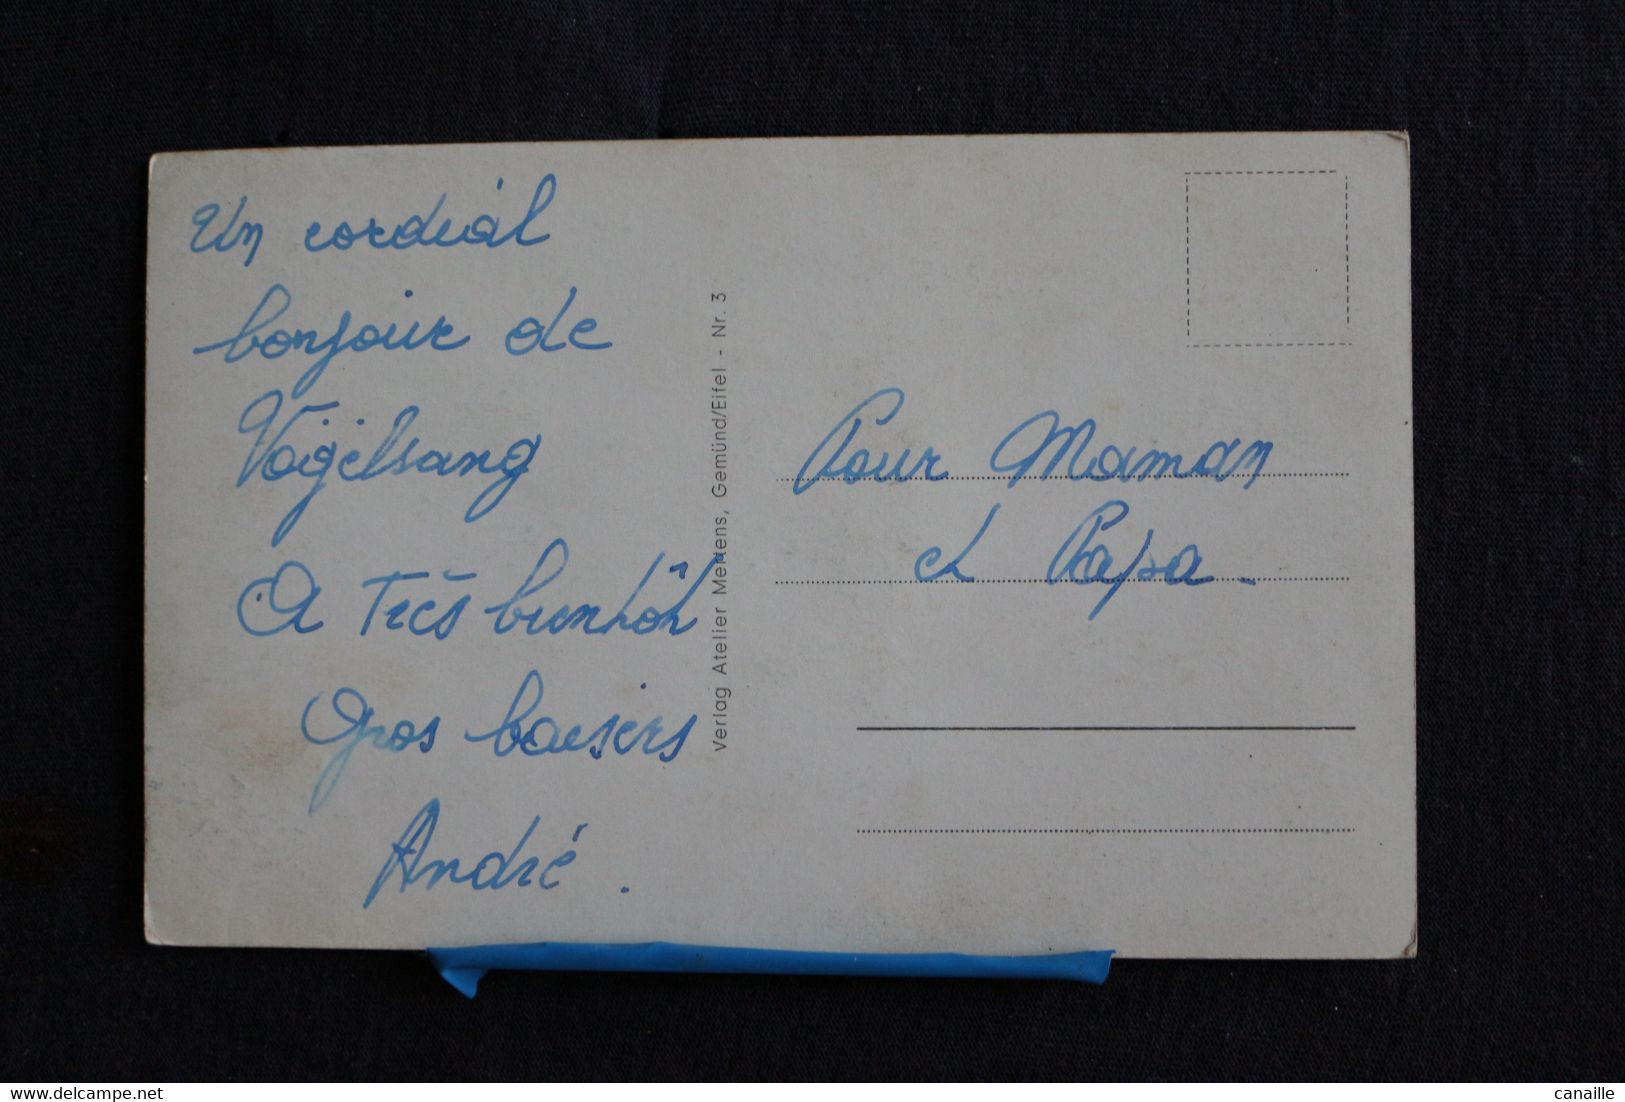 Un cordial
bonjour de
Vogelsang
A Très bientôt
Gros baisers
André.
Verlag Atelier Mertens, Gemünd/Eifel - Nr. 3
Pour Maman
et Papa.
canaille